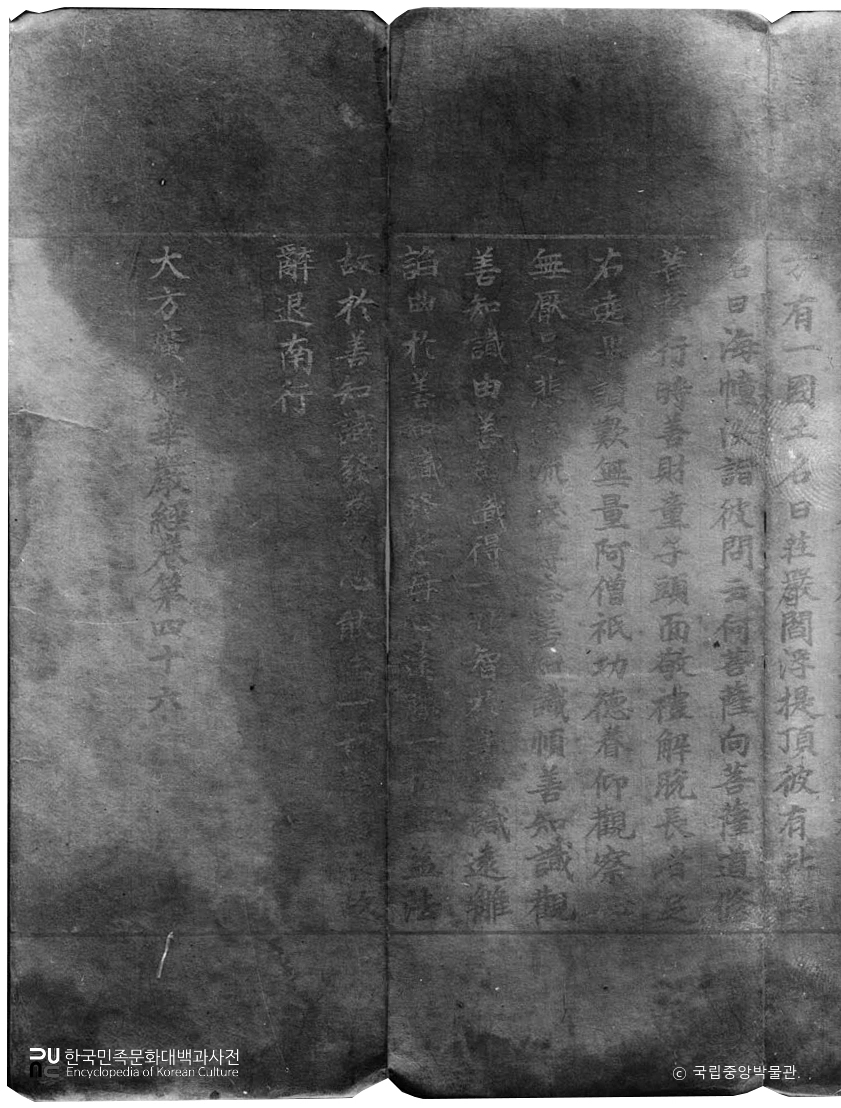 方有一國土名曰莊嚴閻浮提頂彼有比丘
名曰海幢汝詣彼問云何菩薩向菩薩道修
菩薩行時善財童子頭面敬禮解脫長者足
右遶畢讚歎無量阿僧祇功德眷仰觀察
無厭悲流善知識傾善知識觀
善知識由善知識得一切智於識遠離
諂曲於善知識發慈母心遠離一切益法
故於善知識發慈心能令一切故
辭退南行
大方廣佛華嚴經卷第四十六
한국민족문화대백과사전
Encyclopedia of Korean Culture
ⓒ 국립중앙박물관.